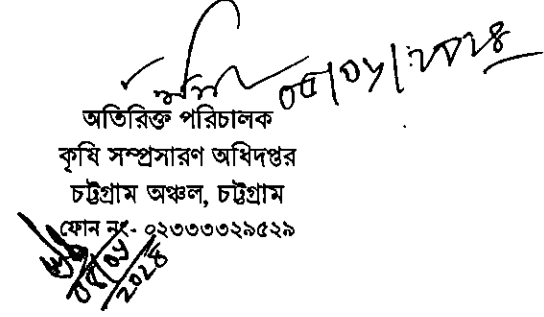 ০৫/০১/২০২৪
অতিরিক্ত পরিচালক
কৃষি সম্প্রসারণ অধিদপ্তর
চট্টগ্রাম অঞ্চল, চট্টগ্রাম
ফোন নং- ০২৩৩৩৩২৯৫২৯